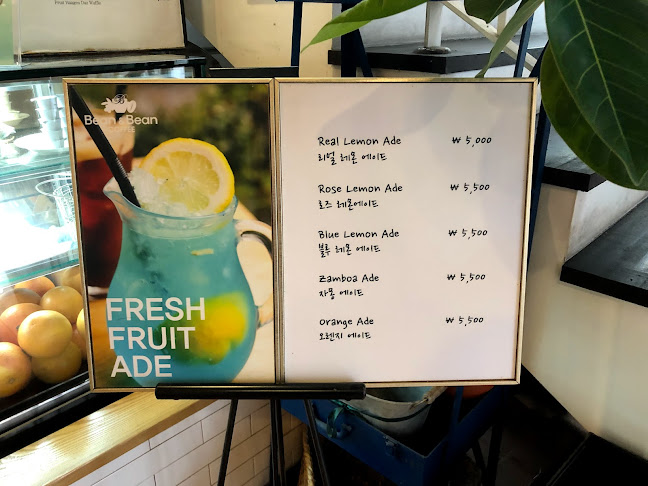 Bean & Bean
FRESH
FRUIT
ADE
Real Lemon Ade ₩ 5,000
리얼 레몬 에이드
Rose Lemon Ade ₩ 5,500
로즈 레몬에이드
Blue Lemon Ade ₩ 5,500
블루 레몬 에이드
Zamboa Ade ₩ 5,500
자몽 에이드
Orange Ade ₩ 5,500
오렌지 에이드